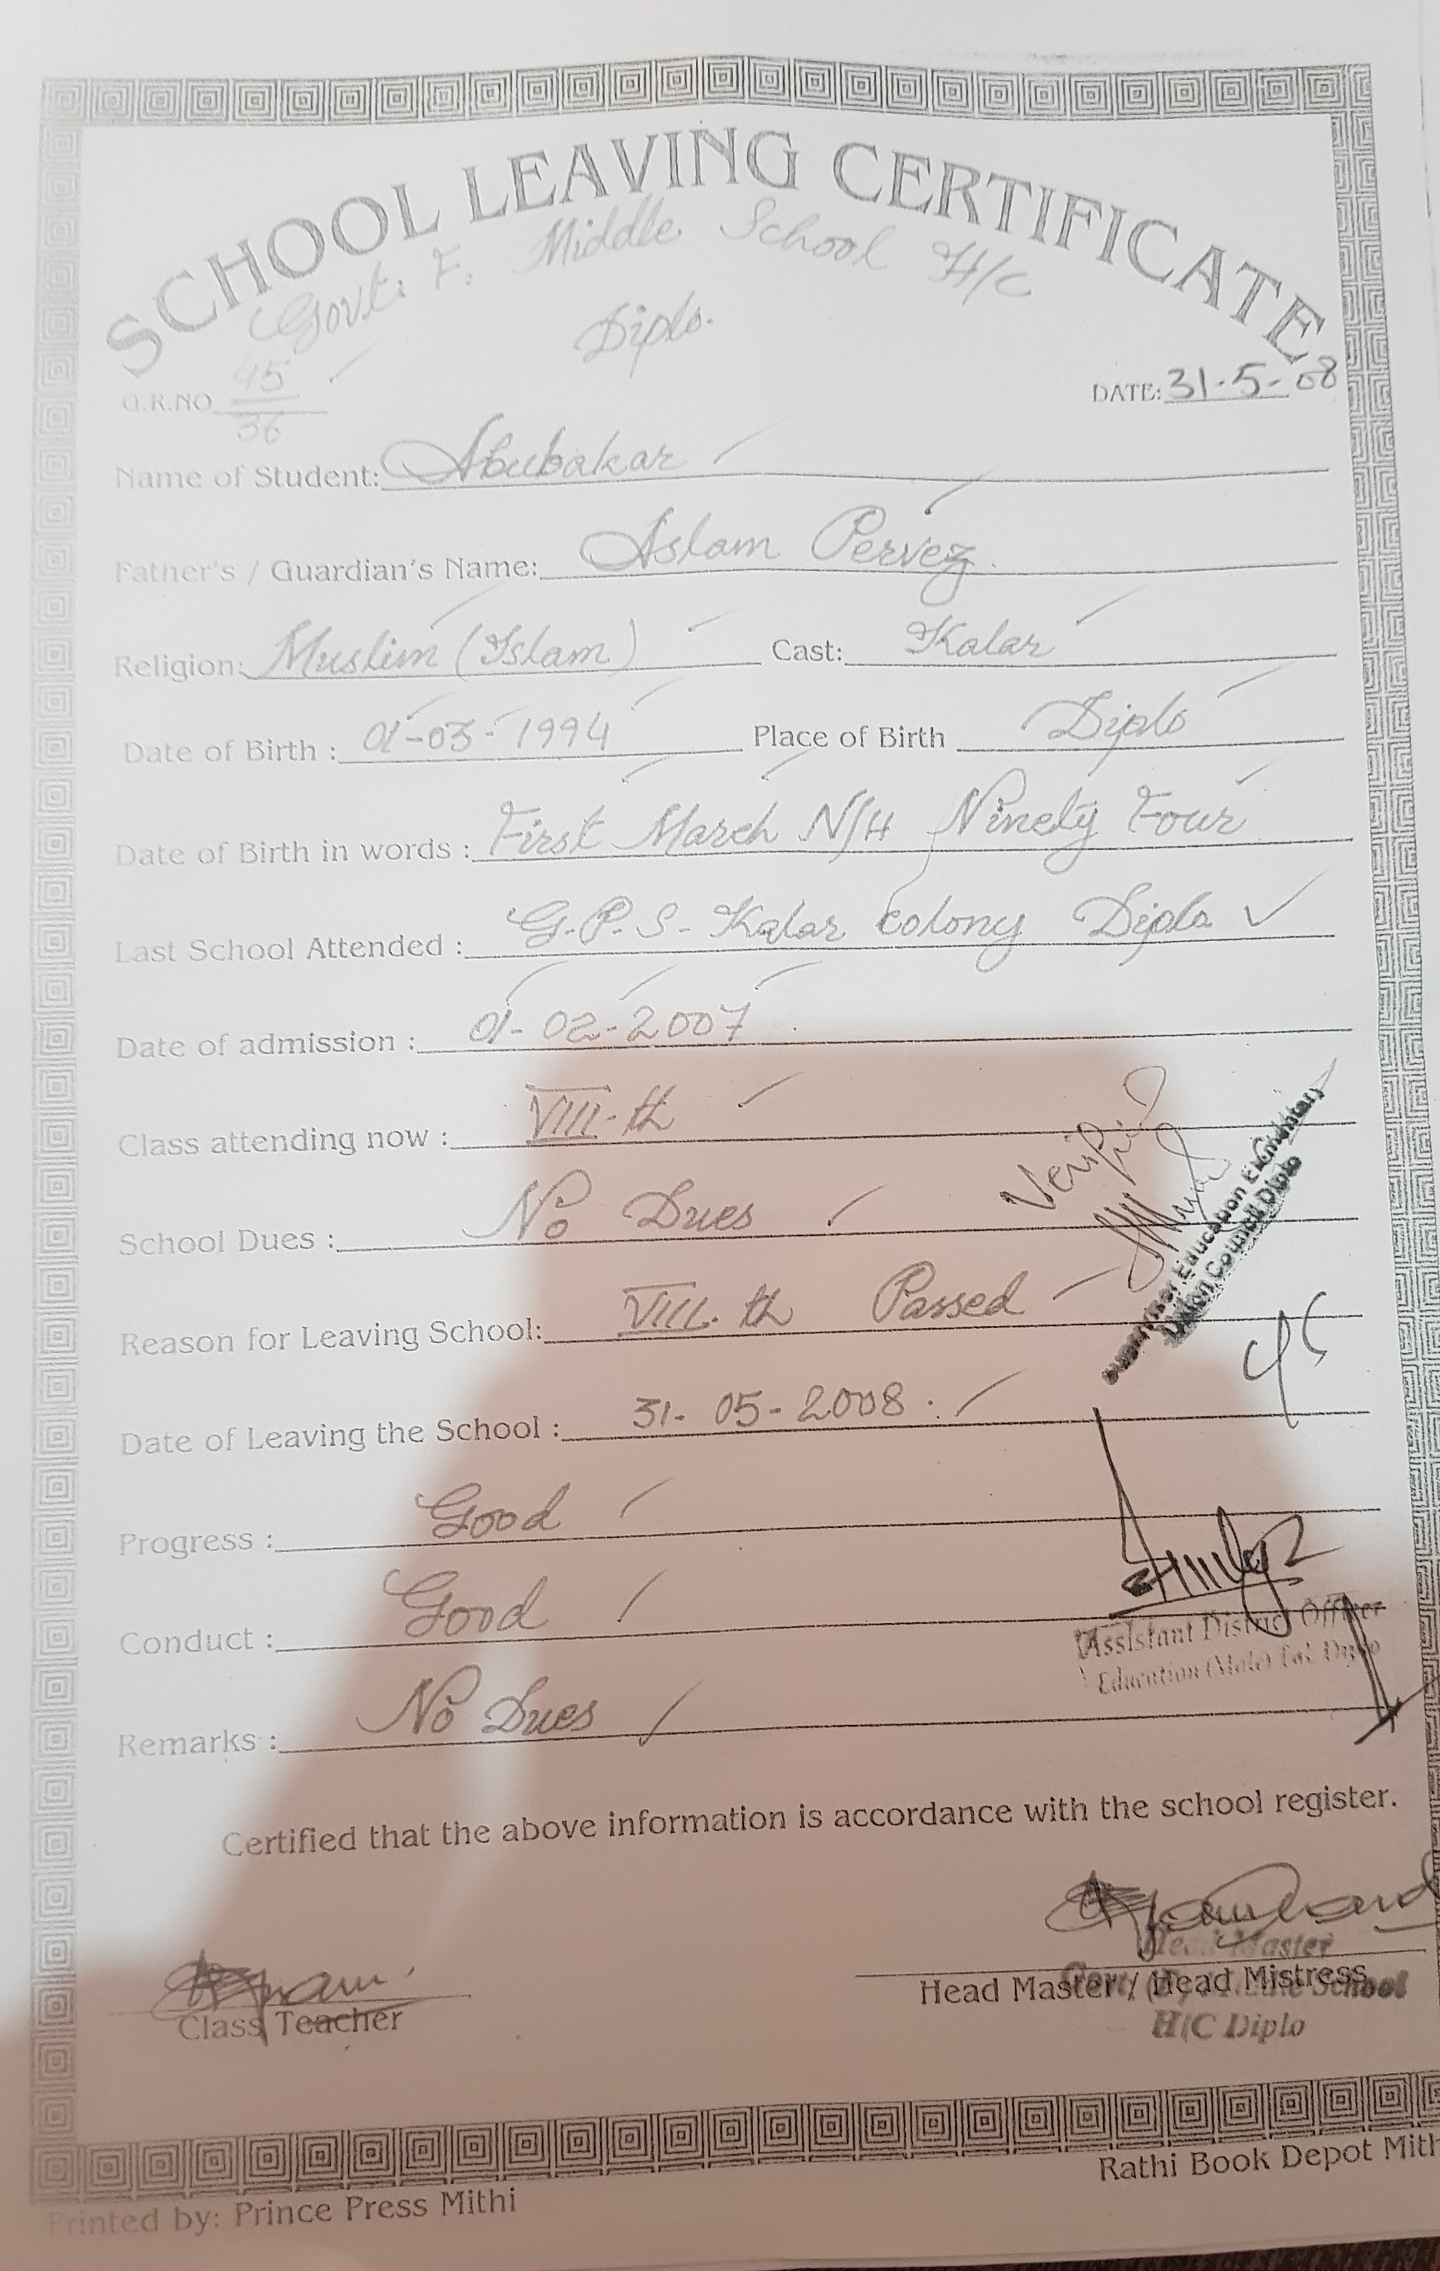 SCHOOL LEAVING CERTIFICATE
Govt: E. Middle School H/C
Diplo.
G.R.NO 45/36
DATE: 31-5-08
Name of Student: Abubakar
Father's / Guardian's Name: Aslam Pervez.
Religion: Muslim (Islam) Cast: Kalar
Date of Birth : 01-03-1994 Place of Birth Diplo
Date of Birth in words : First March N/H Ninety Four
Last School Attended : G.P.S. Kalar Colony Diplo
Date of admission : 01-02-2007
Class attending now : VIII-th
School Dues : No Dues
Verified
Supervisor Education Elementary
Union Council Diplo
Reason for Leaving School: VIII.th Passed
Date of Leaving the School : 31-05-2008.
Progress : Good
Conduct : Good
Assistant District Officer
Education (Male) Tal: Diplo
Remarks : No Dues
Certified that the above information is accordance with the school register.
Class Teacher
Head Master / Head Mistress
Head Master
School
H/C Diplo
Printed by: Prince Press Mithi
Rathi Book Depot Mith